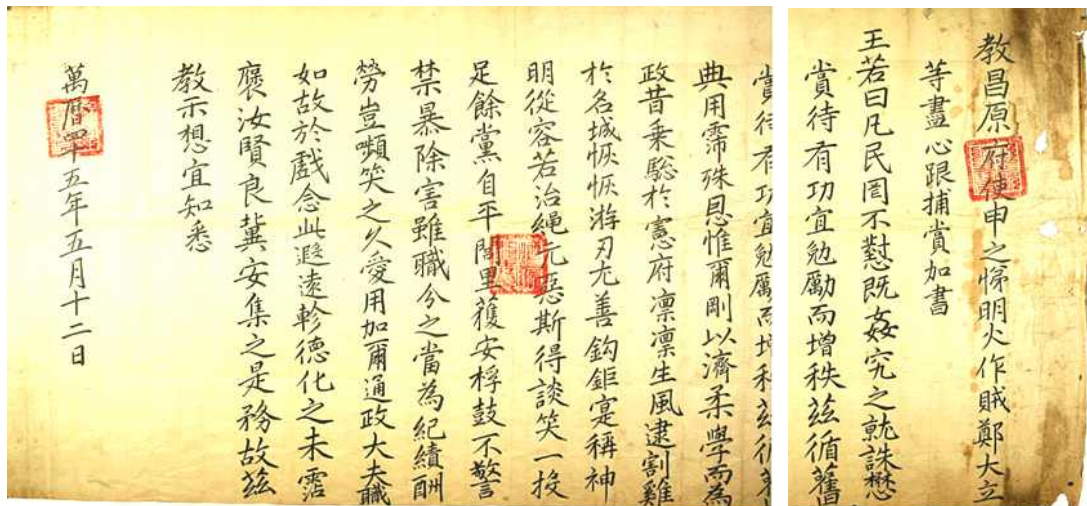 教昌原府使申之悌明火作賊鄭大立
等盡心跟捕賞加書
王若曰凡民罔不懟既姦宄之就誅懋
賞待有功宜勉勵而增秩茲循舊
賞待有功宜勉勵而增秩茲循
典用霈殊恩惟爾剛以濟柔學而為
政昔乘驄於憲府凜凜生風逮割雞
於名城恢恢游刃尤善鈎鉅寔稱神
明從容若治繩元惡斯得談笑一投
足餘黨自平閭里獲安桴鼓不警
禁暴除害雖職分之當為紀績酬
勞豈嚬笑之久愛用加爾通政大夫職
如故於戲念此遐遠軫德化之未霑
褒汝賢良冀安集之是務故茲
教示想宜知悉
萬曆四十五年五月十二日